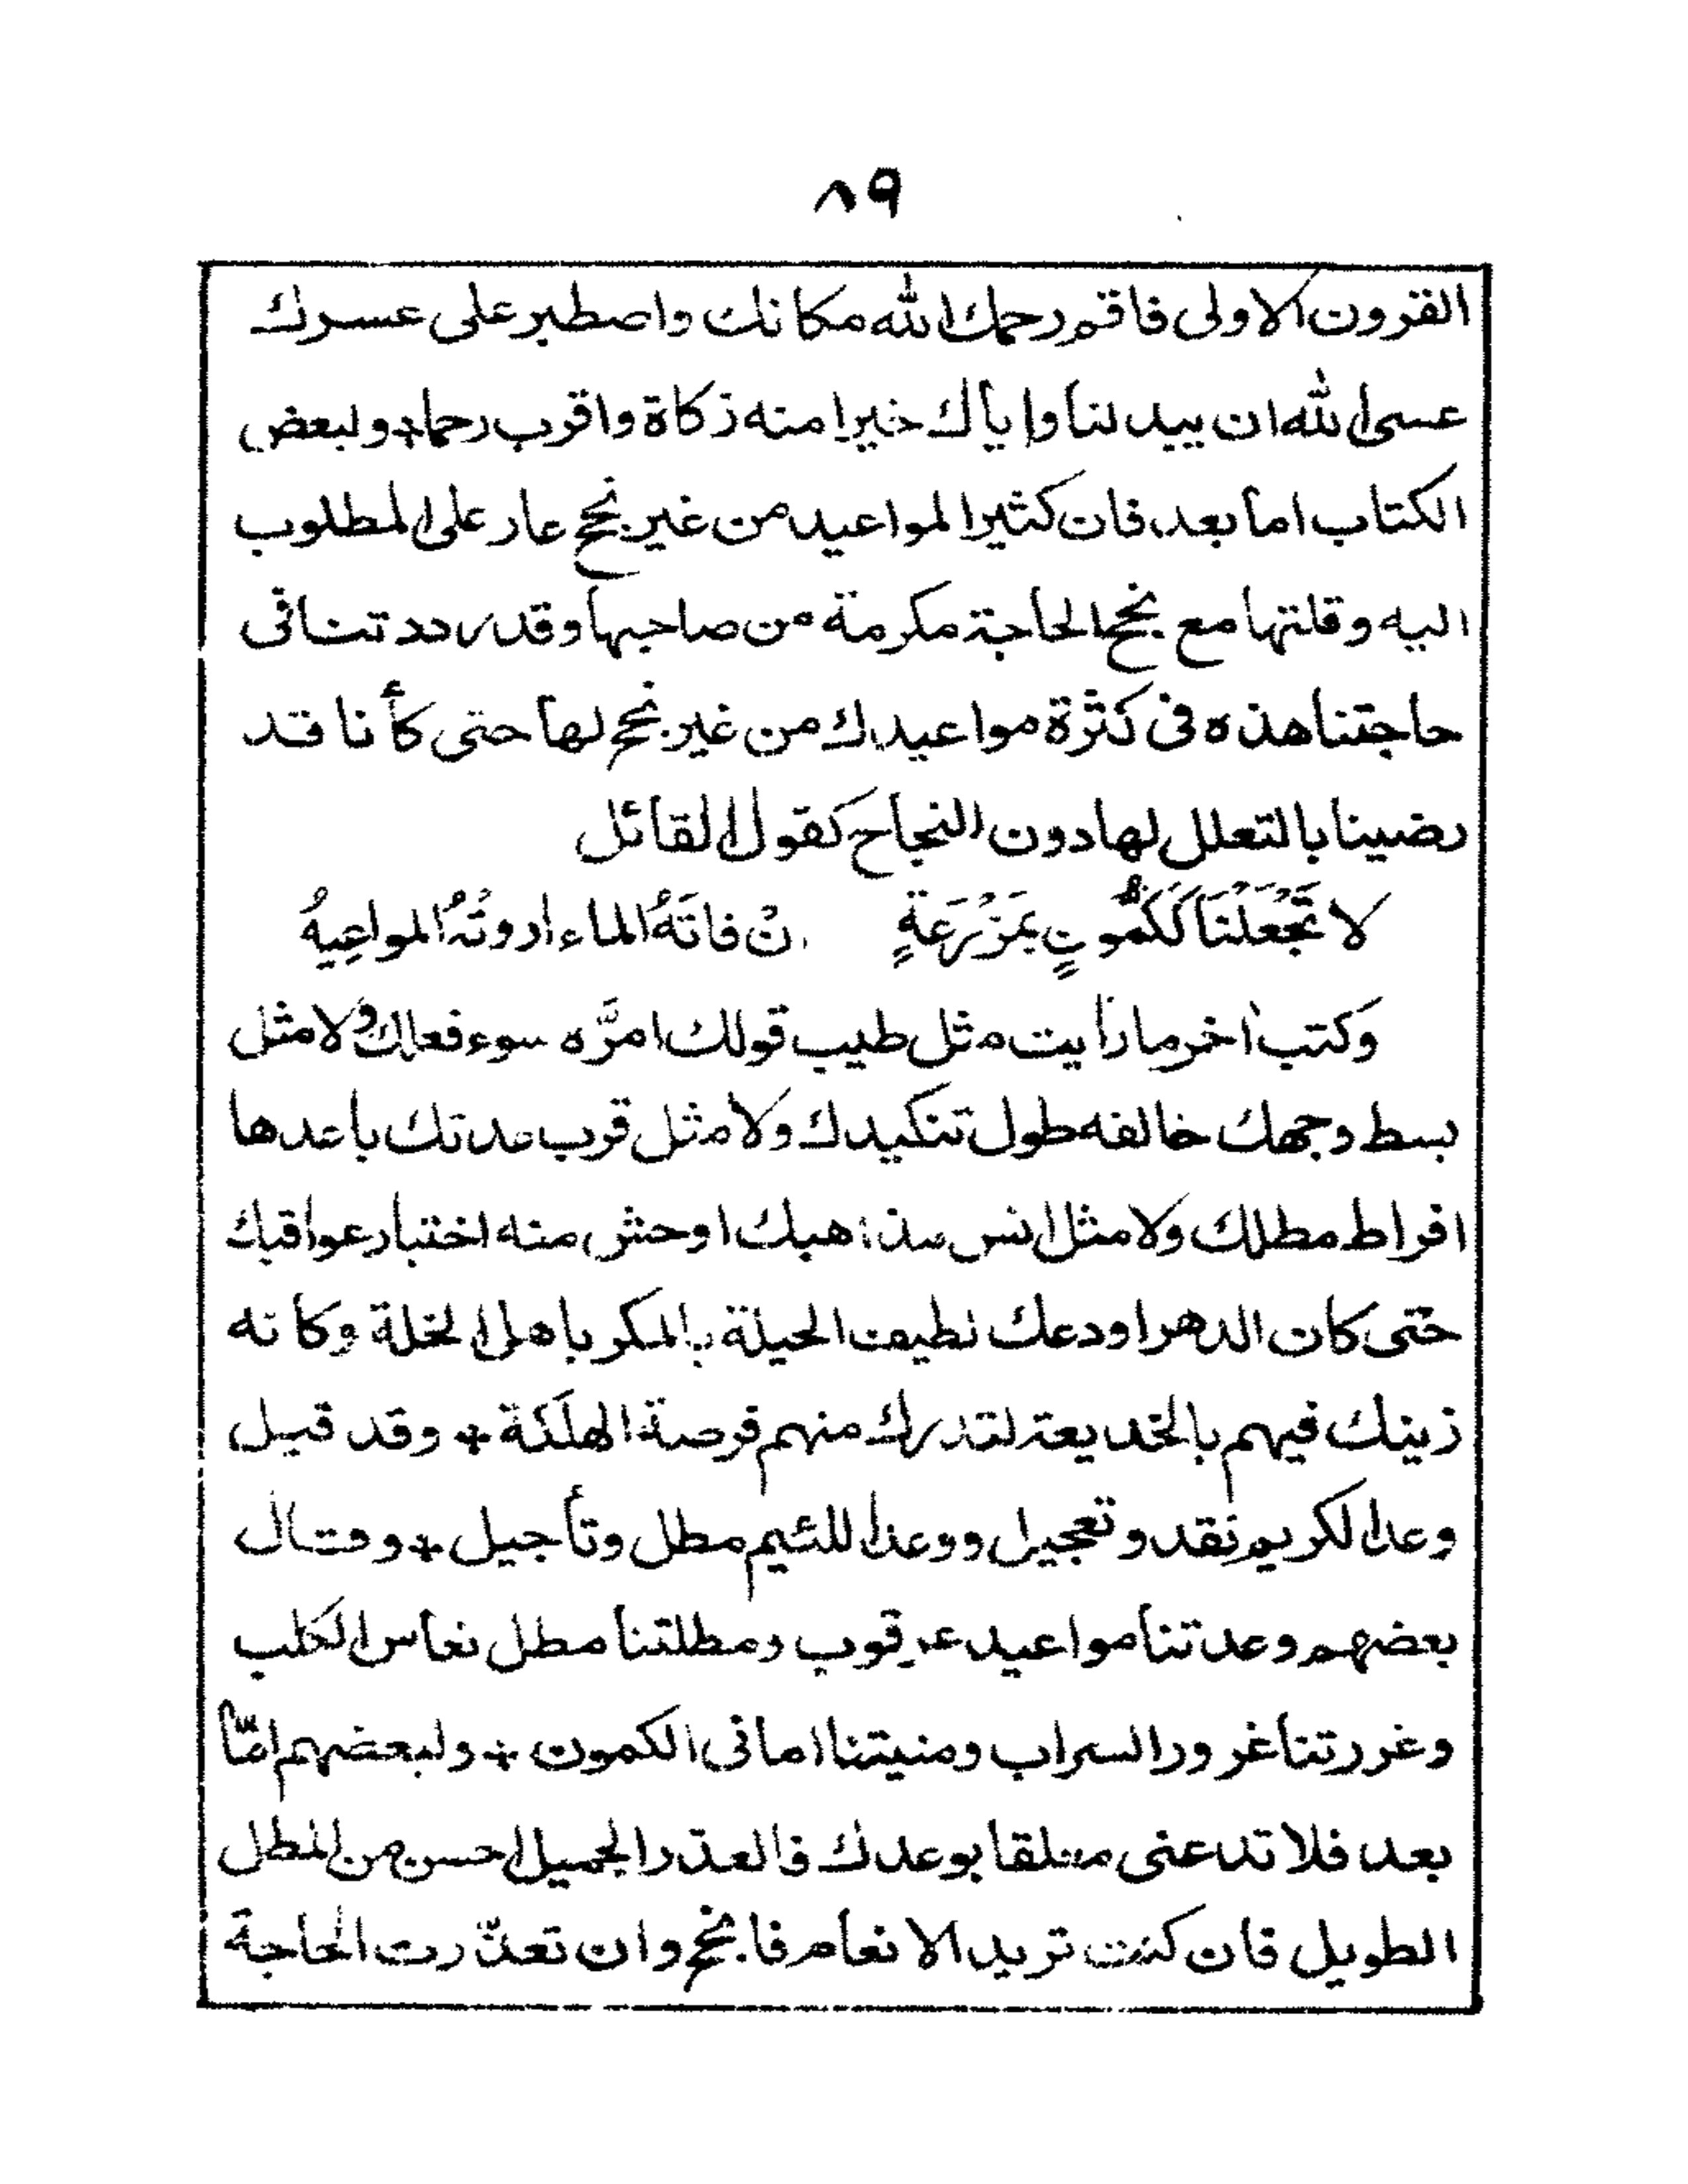 ٨٩
القرون الاولى فاقم رحمك الله مكانك واصطبر على عسرك
عسى الله ان يبدلنا واياك خيرا منه زكاة واقرب رحما * ولبعض
الكتاب اما بعد فان كثير المواعيد من غير نجح عار على المطلوب
اليه وقلتها مع نجح الحاجة مكرمة من صاحبها وقد رددتنا فى
حاجتنا هذه فى كثرة مواعيدك من غير نجح لها حتى كأنا قد
رضينا بالتعلل لها دون النجاح كقول القائل
لا تَجْعَلَنَّا كَكَمُّونٍ بِمَزْرَعَةٍ نْ فاتَهُ الماء اروتْهُ المواعِيدُ
وكتب اخر ما رأيت مثل طيب قولك امرَّه سوء فعلك ولا مثل
بسط وجهك خالفه طول تنكيدك ولا مثل قرب عدتك باعدها
افراط مطلك ولا مثل انس مذاهبك اوحش منه اختبار عواقبك
حتى كان الدهر اودعك لطيف الحيلة بالمكر باهل الخلة وكانه
زينك فيهم بالخديعة لتدرك منهم فرصة الهلَكة * وقد قيل
وعد الكريم نقد وتعجيل ووعد اللئيم مطل وتأجيل * وقال
بعضهم وعدتنا مواعيد عرقوب ومطلتنا مطل نعاس الكلب
وغررتنا غرور السراب ومنيتنا امانى الكمون * ولبعضهم امّا
بعد فلا تدعنى معلقا بوعدك فالعذر الجميل احسن من المطل
الطويل فان كنت تريد الانعام فانجح وان تعذّرت الحاجة